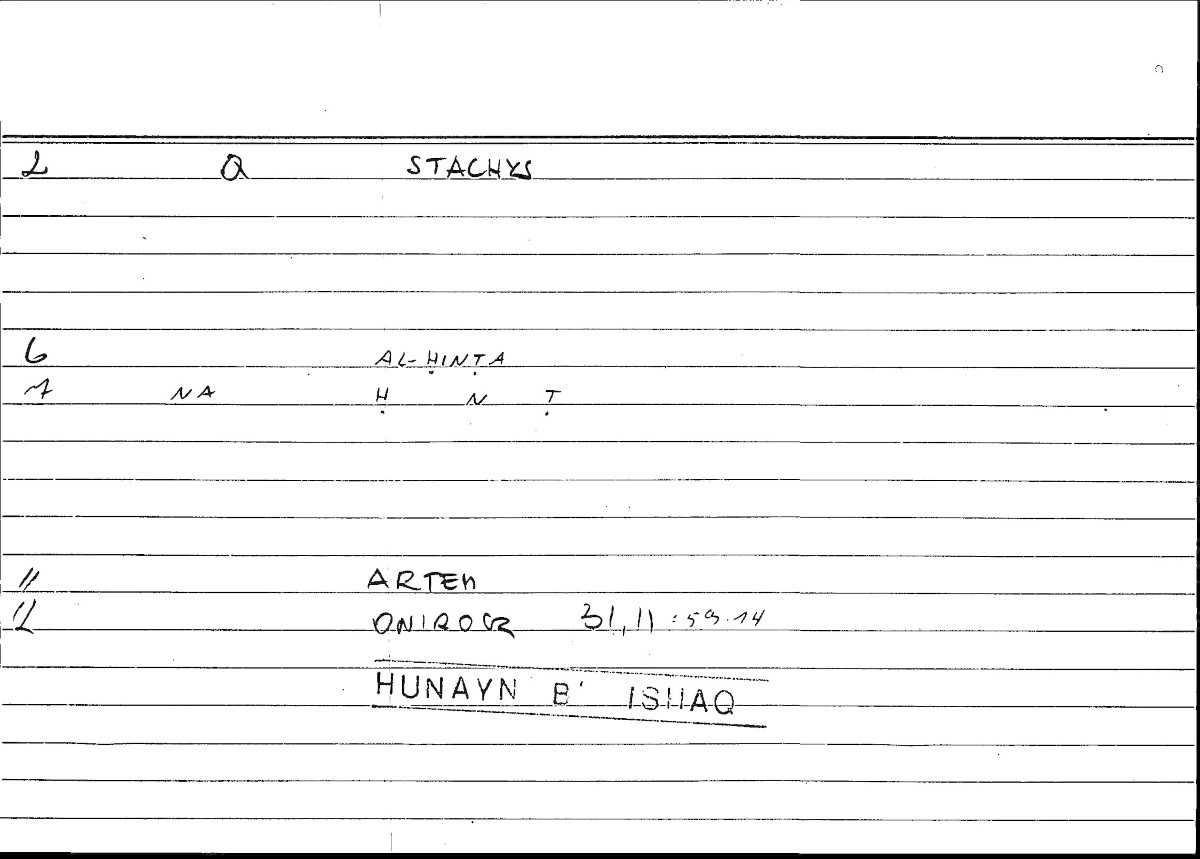 2 Q STACHYS
6 AL-ḤINṬA
7 NA Ḥ N Ṭ
11 ARTEM
12 ONIROCR 31,11 : 59.14
HUNAYN B' ISHAQ